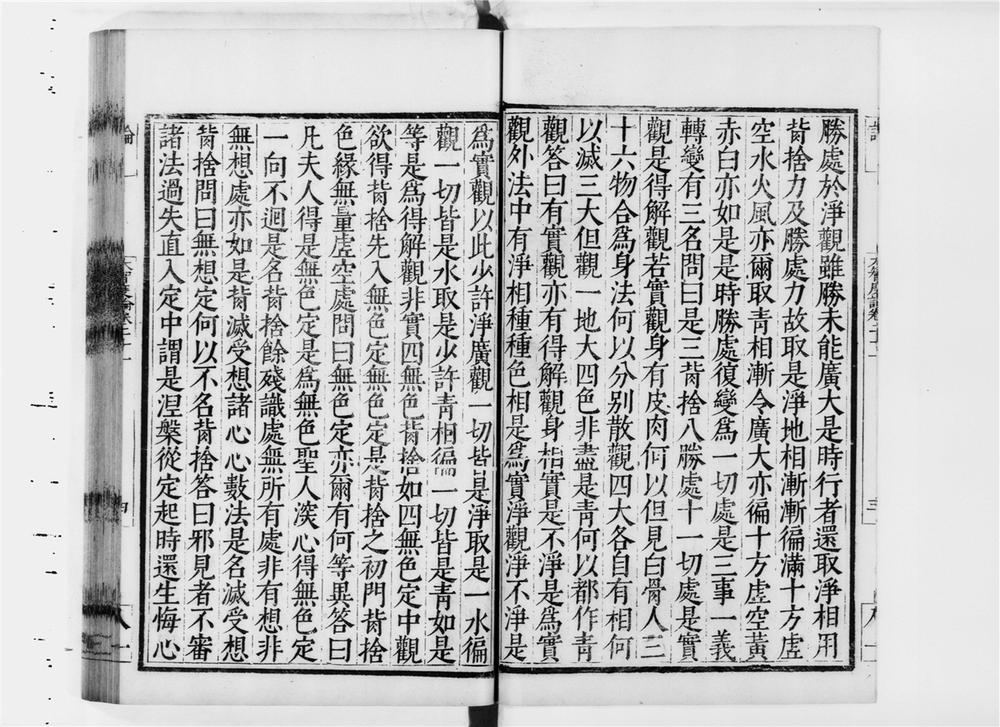 勝處於淨觀雖勝未能廣大是時行者還取淨相用
背捨力及勝處力故取是淨地相漸漸徧滿十方虛
空水火風亦爾取青相漸令廣大亦徧十方虛空黃
赤白亦如是是時勝處復變爲一切處是三事一義
轉變有三名問曰是三背捨八勝處十一切處是實
觀是得解觀若實觀身有皮肉何以但見白骨人三
十六物合爲身法何以分别散觀四大各自有相何
以滅三大但觀一地大四色非盡是青何以都作青
觀答曰有實觀亦有得解觀身相實是不淨是爲實
觀外法中有淨相種種色相是爲實淨觀淨不淨是
爲實觀以此少許淨廣觀一切皆是淨取是一水徧
觀一切皆是水取是少許青相徧一切皆是青如是
等是爲得解觀非實四無色背捨如四無色定中觀
欲得背捨先入無色定無色定是背捨之初門背捨
色緣無量虛空處問曰無色定亦爾有何等異答曰
凡夫人得是無色定是爲無色聖人深心得無色定
一向不迴是名背捨餘殘識處無所有處非有想非
無想處亦如是背滅受想諸心心數法是名滅受想
背捨問曰無想定何以不名背捨答曰邪見者不審
諸法過失直入定中謂是涅槃從定起時還生悔心